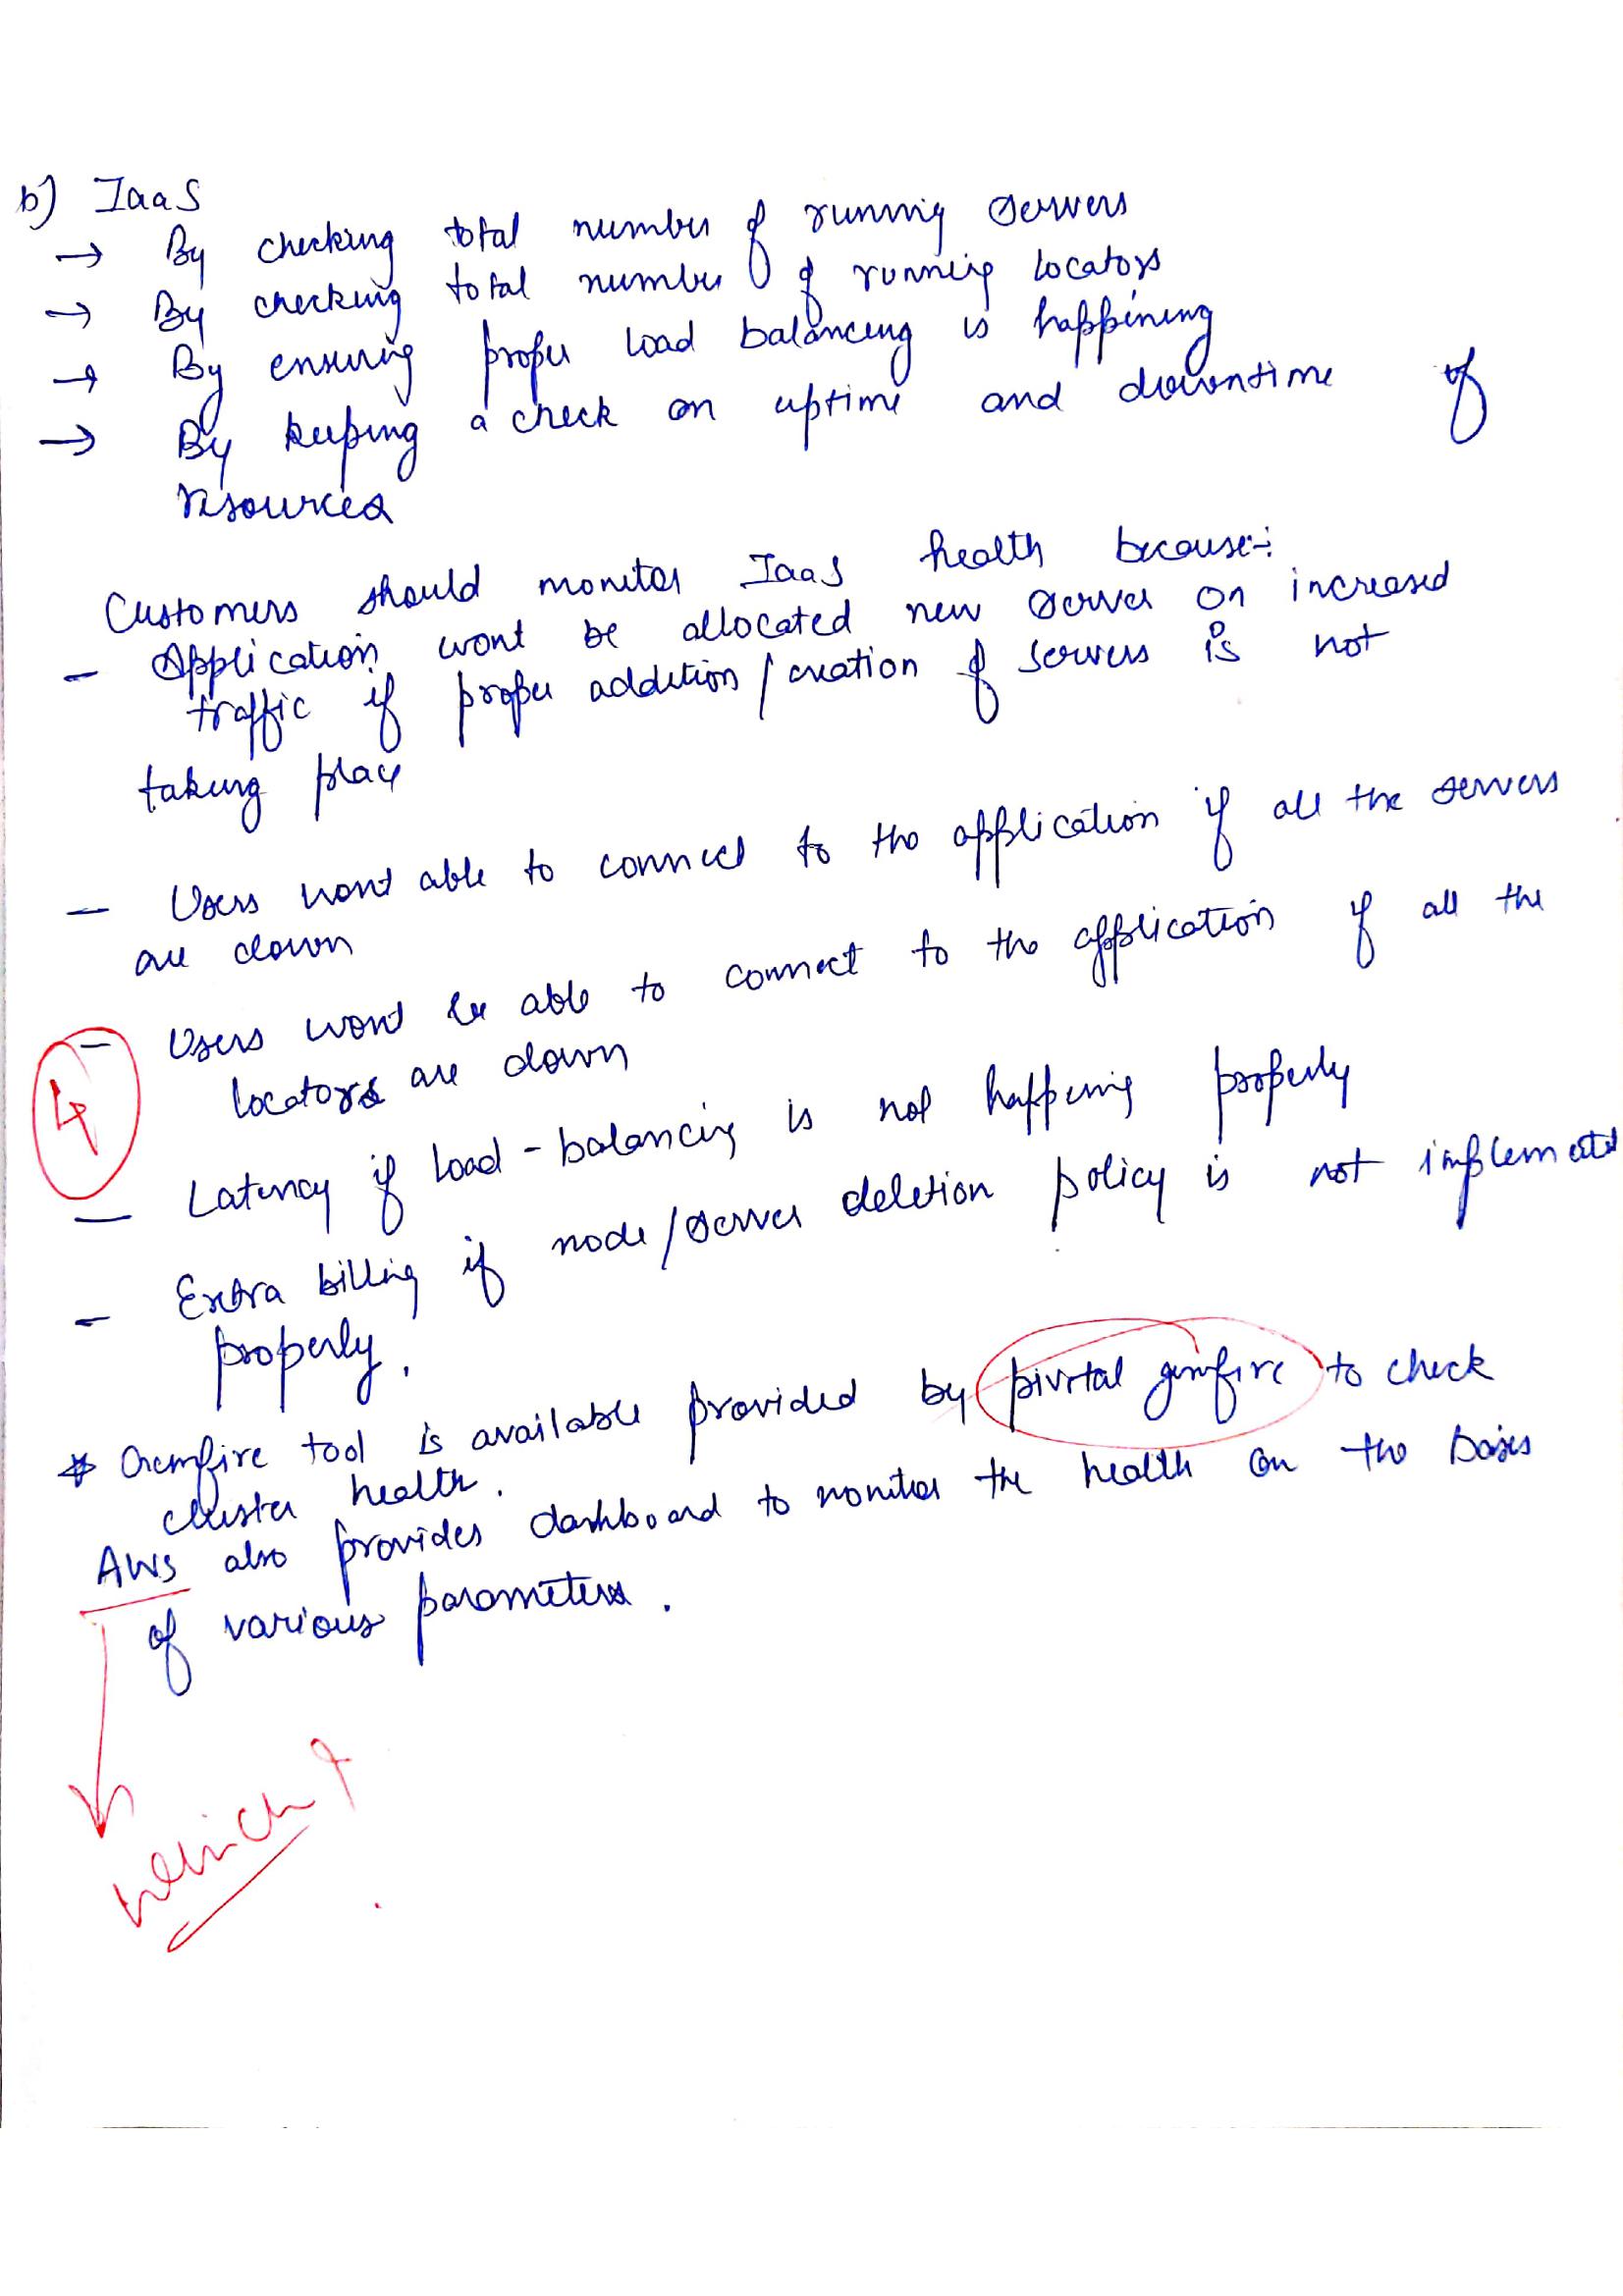 b) IaaS
→ By checking total number of running servers
→ By checking total number of running locators
→ By ensuring proper load balancing is happining
→ By keeping a check on uptime and downtime of
resources
Customers should monitor IaaS health because:-
- Application wont be allocated new server on increased
traffic if proper addition/creation of servers is not
taking place
- Users wont able to connect to the application if all the servers
are down
- Users wont be able to connect to the application if all the
locators are down
4
- Latency if load-balancing is not happening properly
- Extra billing if node/server deletion policy is not implemented
properly.
* Gemfire tool is available provided by pivotal gemfire to check
cluster health.
AWS also provides dashboard to monitor the health on the basis
of various parameters.
which?